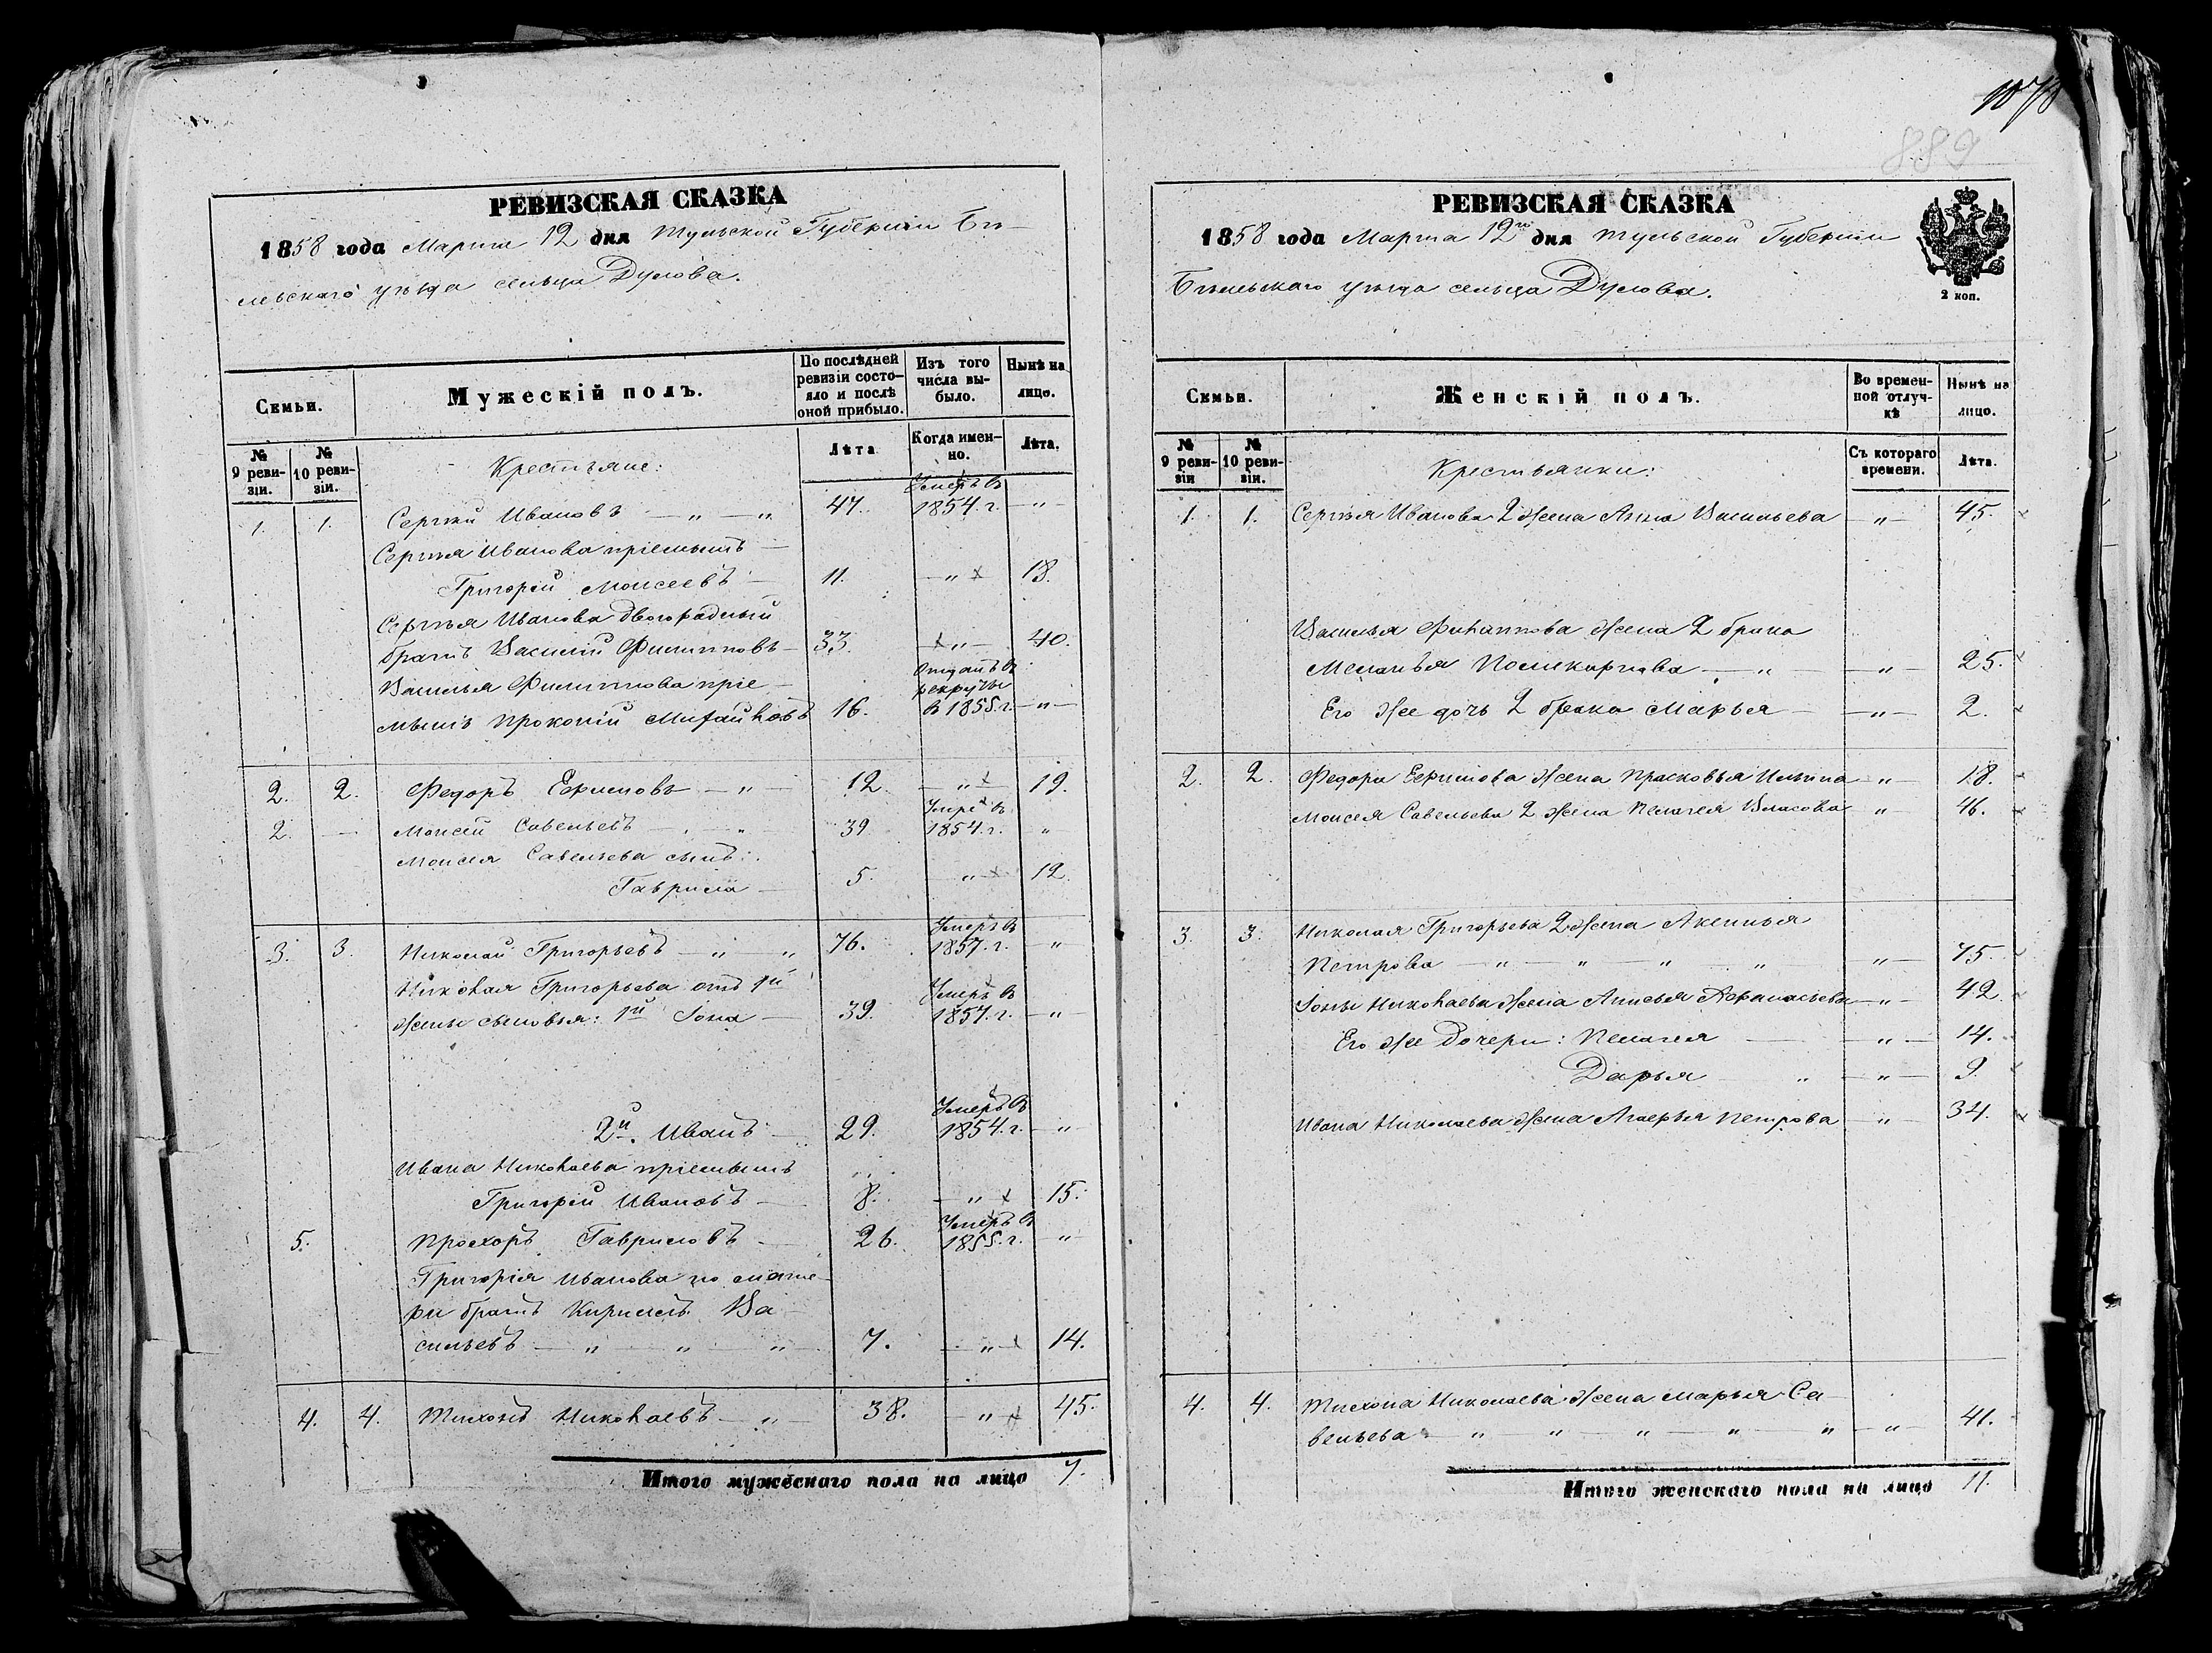 РЕВИЗСКАЯ СКАЗКА
1858 года Марта 12 дня Тульской Губерніи Бѣ-
левскаго уѣзда сельца Дулова.
Семьи.
Мужескій полъ.
По послѣдней ревизіи состояло и послѣ оной прибыло.
Изъ того числа выбыло.
Нынѣ на лицо.
№ 9 ревизіи.
№ 10 ревизіи.
Крестьяне:
Лѣта
Когда именно.
Лѣта.
1. 1. Сергѣй Ивановъ — „ — „ 47. Умеръ въ 1854. г. — „ —
Сергѣя Иванова пріемышъ —
Григорій Моисеевъ — 11. — „ — 18.
Сергѣя Иванова двоюродный
братъ Василій Филипповъ — 33. — „ — 40.
Василья Филиппова пріе-
мышъ Прокопій Михайловъ 16. Отданъ въ рекруты въ 1855. г. — „ —
2. 2. Федоръ Ефимовъ — „ — 12. — „ — 19.
2. — Моисей Савельевъ — „ 39 Умеръ въ 1854. г. „
Моисея Савельева сынъ:
Гаврила — 5. — „ — 12.
3. 3. Николай Григорьевъ — „ — „ 76. Умеръ въ 1857. г. — „
Николая Григорьева отъ 1й
жены сыновья: 1й Іона — 39. Умеръ въ 1857. г. — „ —
2й. Иванъ — 29. Умеръ въ 1854. г. — „ —
Ивана Николаева пріемышъ
Григорій Ивановъ — 8. — „ — 15.
5. Прохоръ Гавриловъ — 26. Умеръ въ 1855. г. — „ —
Григорія Иванова по мате-
ри братъ Кирилъ Ва-
сильевъ — „ — „ — „ 7. — „ — 14.
4. 4. Тихонъ Николаевъ — „ — 38. — „ — 45.
Итого мужескаго пола на лицо 7.
1078
889
РЕВИЗСКАЯ СКАЗКА
1858 года Марта 12го дня Тульской Губерніи
Бѣлевскаго уѣзда сельца Дулова.
2 коп.
Семьи.
Женскій полъ.
Во временной отлучкѣ
Нынѣ на лицо.
№ 9 ревизіи
№ 10 ревизіи.
Крестьянки:
Съ котораго времени.
Лѣта.
1. 1. Сергѣя Иванова 2 жена Анна Васильева — „ — 45.
Василья Филиппова жена 2 брака
Меланья Поликарпова — „ — „ — 25.
Его же дочь 2 брака Марья — — „ — 2.
2. 2. Федора Ефимова жена Прасковья Ильина — „ — 18.
Моисея Савельева 2 жена Пелагея Власова — „ — 46.
3. 3. Николая Григорьева 2 жена Аксинья
Петрова — „ — „ — „ — „ — „ — 75.
Іоны Николаева жена Анисья Афанасьева — „ — 42.
Его же дочери: Пелагея — — „ — 14.
Дарья — „ — „ — 9.
Ивана Николаева жена Агафья Петрова — „ — 34.
4. 4. Тихона Николаева жена Марья Са-
вельева — „ — „ — „ — „ — „ — „ — 41.
Итого женскаго пола на лицо 11.